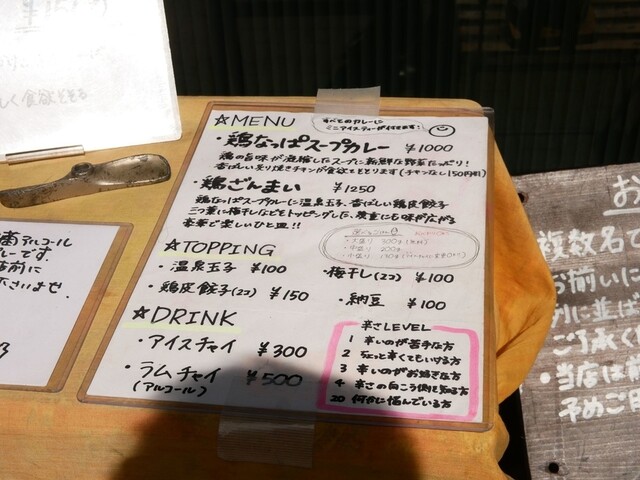 しく食欲そそる
☆MENU
すべてのカレーに
ミニアイスティーが付きます!
・鶏なっぱスープカレー ¥1000
鶏の旨味が凝縮したスープに新鮮な野菜たっぷり!
香ばしい炙り焼きチキンが食欲をそそります(チキンなし150円引)
・鶏ざんまい ¥1250
鶏なっぱスープカレーに温泉玉子、香ばしい鶏皮餃子
三つ葉に梅干しなどをトッピングした、幾重にも味が広がる
豪華で楽しいひと皿!!
・大盛り 300g
・中盛り 200g
☆TOPPING
・温泉玉子 ¥100
・梅干し(2コ) ¥100
・鶏皮餃子(2コ) ¥150
・納豆 ¥100
☆DRINK
・アイスチャイ ¥300
・ラムチャイ ¥500
(アルコール)
辛さLEVEL
1 辛いのが苦手な方
2 ちょっと辛くてもいける方
3 辛いのがお好きな方
4 辛さの向こう側を知る方
20 何かに悩んでいる方
アルコール
レーです。
店前に
ださいませ。
お
複数名で
お揃いに
列に並ば
ご了承く
・当店は前
予めご用